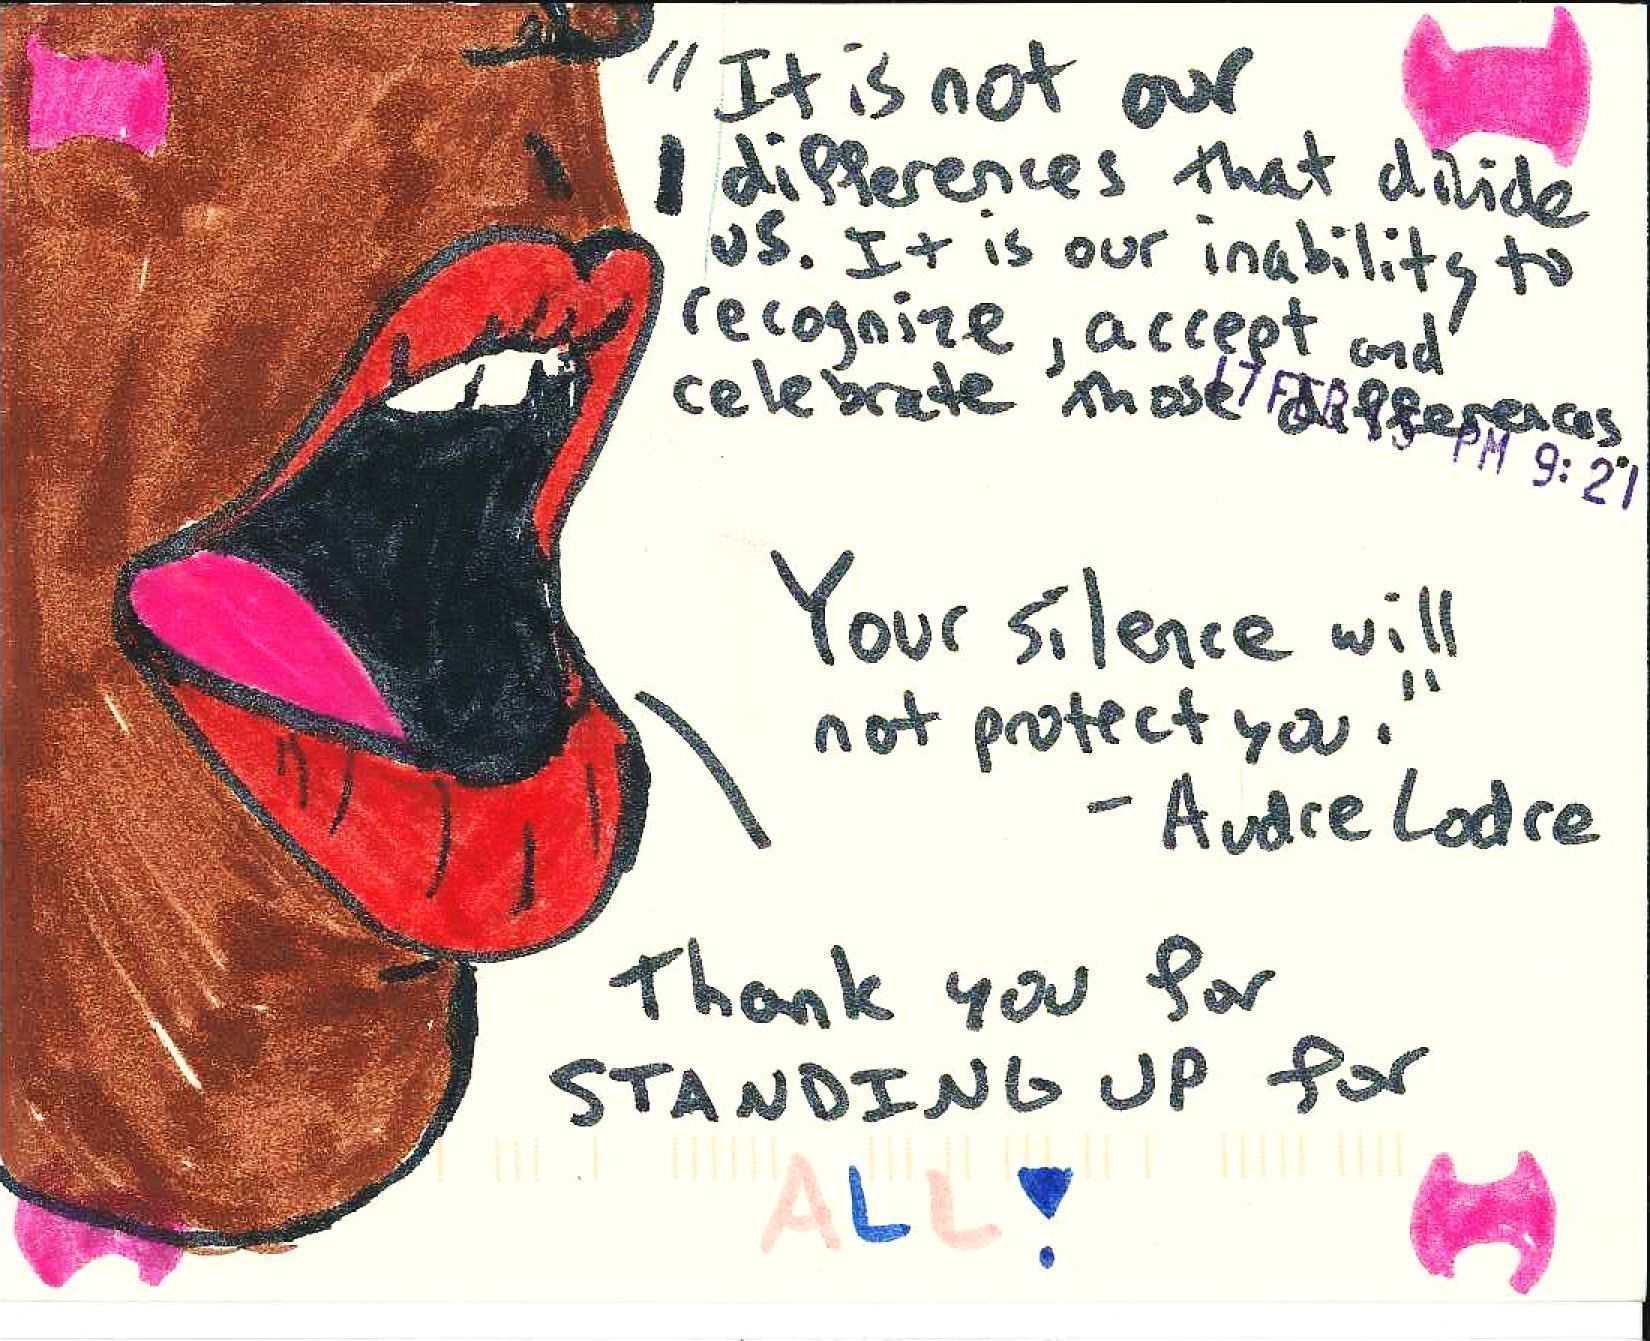 "It is not our
differences that divide
us. It is our inability to
recognize, accept and
celebrate those differences.
17 FEB PM 9:21
Your silence will
not protect you."
- Audre Lodre
Thank you for
STANDING UP for
ALL!